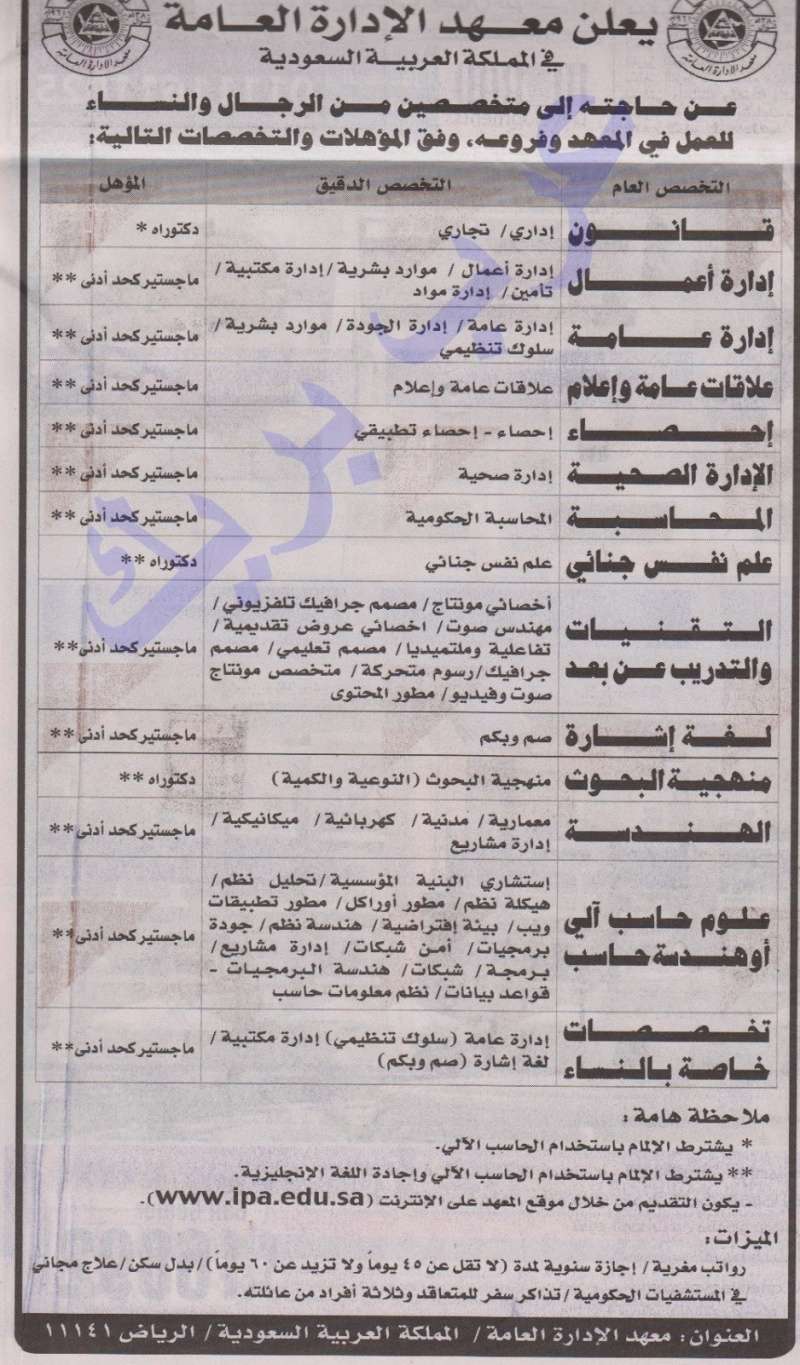 يعلن معهد الإدارة العامة
في المملكة العربية السعودية
معهد الإدارة العامة
معهد الإدارة العامة
عن حاجته إلى متخصصين من الرجال والنساء
للعمل في المعهد وفروعه، وفق المؤهلات والتخصصات التالية:
التخصص العام التخصص الدقيق المؤهل
قانون إداري/ تجاري دكتوراه *
إدارة أعمال إدارة أعمال / موارد بشرية/ إدارة مكتبية/ ماجستير كحد أدنى **
تأمين/ إدارة مواد
إدارة عامة إدارة عامة/ إدارة الجودة/ موارد بشرية/ ماجستير كحد أدنى **
سلوك تنظيمي
علاقات عامة وإعلام علاقات عامة وإعلام ماجستير كحد أدنى **
إحصاء إحصاء - إحصاء تطبيقي ماجستير كحد أدنى **
الإدارة الصحية إدارة صحية ماجستير كحد أدنى **
المحاسبة المحاسبة الحكومية ماجستير كحد أدنى **
علم نفس جنائي علم نفس جنائي دكتوراه **
التقنيات والتدريب عن بعد أخصائي مونتاج/ مصمم جرافيك تلفزيوني/
مهندس صوت/ اخصائي عروض تقديمية/
تفاعلية وملتميديا/ مصمم تعليمي/ مصمم ماجستير كحد أدنى**
جرافيك/ رسوم متحركة/ متخصص مونتاج
صوت وفيديو/ مطور المحتوى
لغة إشارة صم وبكم ماجستير كحد أدنى **
منهجية البحوث منهجية البحوث (النوعية والكمية) دكتوراه **
الهندسة معمارية/ مدنية/ كهربائية/ ميكانيكية/ ماجستير كحد أدنى**
إدارة مشاريع
علوم حاسب آلي أو هندسة حاسب إستشاري البنية المؤسسية/ تحليل نظم/
هيكلة نظم/ مطور أوراكل/ مطور تطبيقات
ويب/ بيئة إفتراضية/ هندسة نظم/ جودة
برمجيات/ أمن شبكات/ إدارة مشاريع/ ماجستير كحد أدنى**
برمجة/ شبكات/ هندسة البرمجيات -
قواعد بيانات/ نظم معلومات حاسب
تخصصات خاصة بالنساء إدارة عامة (سلوك تنظيمي) إدارة مكتبية/ ماجستير كحد أدنى**
لغة إشارة (صم وبكم)
ملاحظة هامة:
* يشترط الإلمام باستخدام الحاسب الآلي.
** يشترط الإلمام باستخدام الحاسب الآلي وإجادة اللغة الإنجليزية.
- يكون التقديم من خلال موقع المعهد على الإنترنت (www.ipa.edu.sa).
الميزات:
رواتب مغرية/ إجازة سنوية لمدة (لا تقل عن ٤٥ يوماً ولا تزيد عن ٦٠ يوماً)/ بدل سكن/ علاج مجاني
في المستشفيات الحكومية/ تذاكر سفر للمتعاقد وثلاثة أفراد من عائلته.
العنوان: معهد الإدارة العامة/ المملكة العربية السعودية/ الرياض ١١١٤١